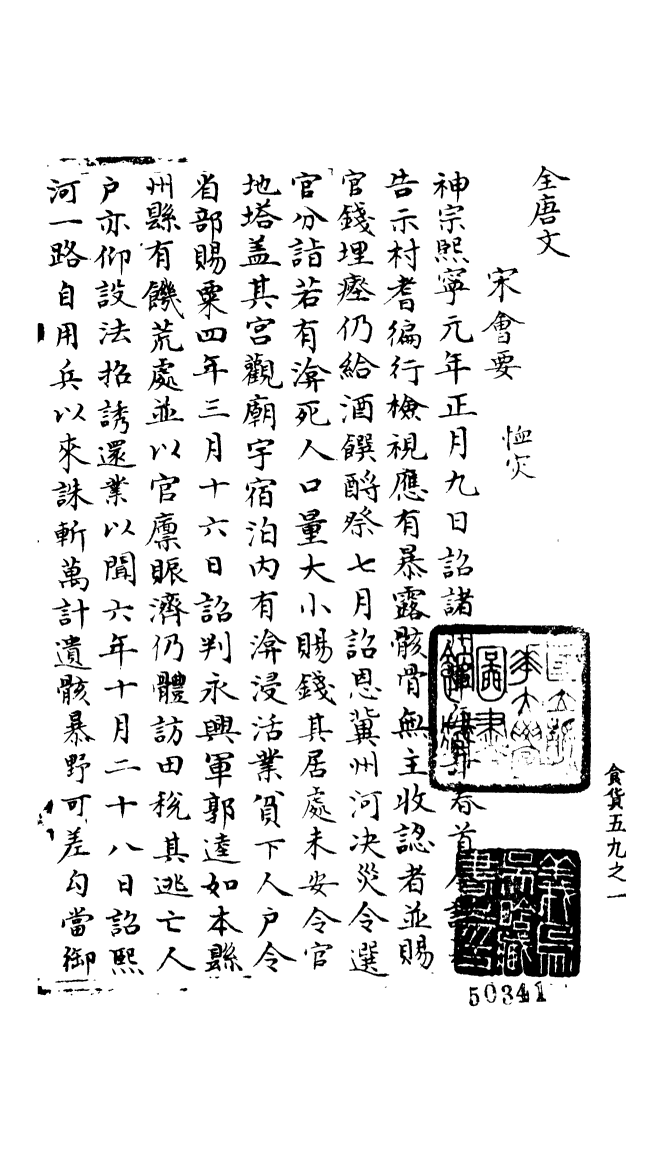 全唐文
宋會要
恤灾
神宗熙寧元年正月九日詔諸春首
告示村耆徧行檢視應有暴露骸骨無主收認者並賜
官錢埋瘞仍給酒饌酹祭七月詔恩冀州河決災令選
官分詣若有渰死人口量大小賜錢其居處未安令官
地塔蓋其宮觀廟宇宿泊內有渰浸活業貧下人戶令
省部賜粟四年三月十六日詔判永興軍郭逵如本縣
州縣有饑荒處並以官廪賑濟仍體訪田稅其逃亡人
戶亦仰設法招誘還業以聞六年十月二十八日詔熙
河一路自用兵以來誅斬萬計遺骸暴野可差勾當御
食貨五九之一
50341